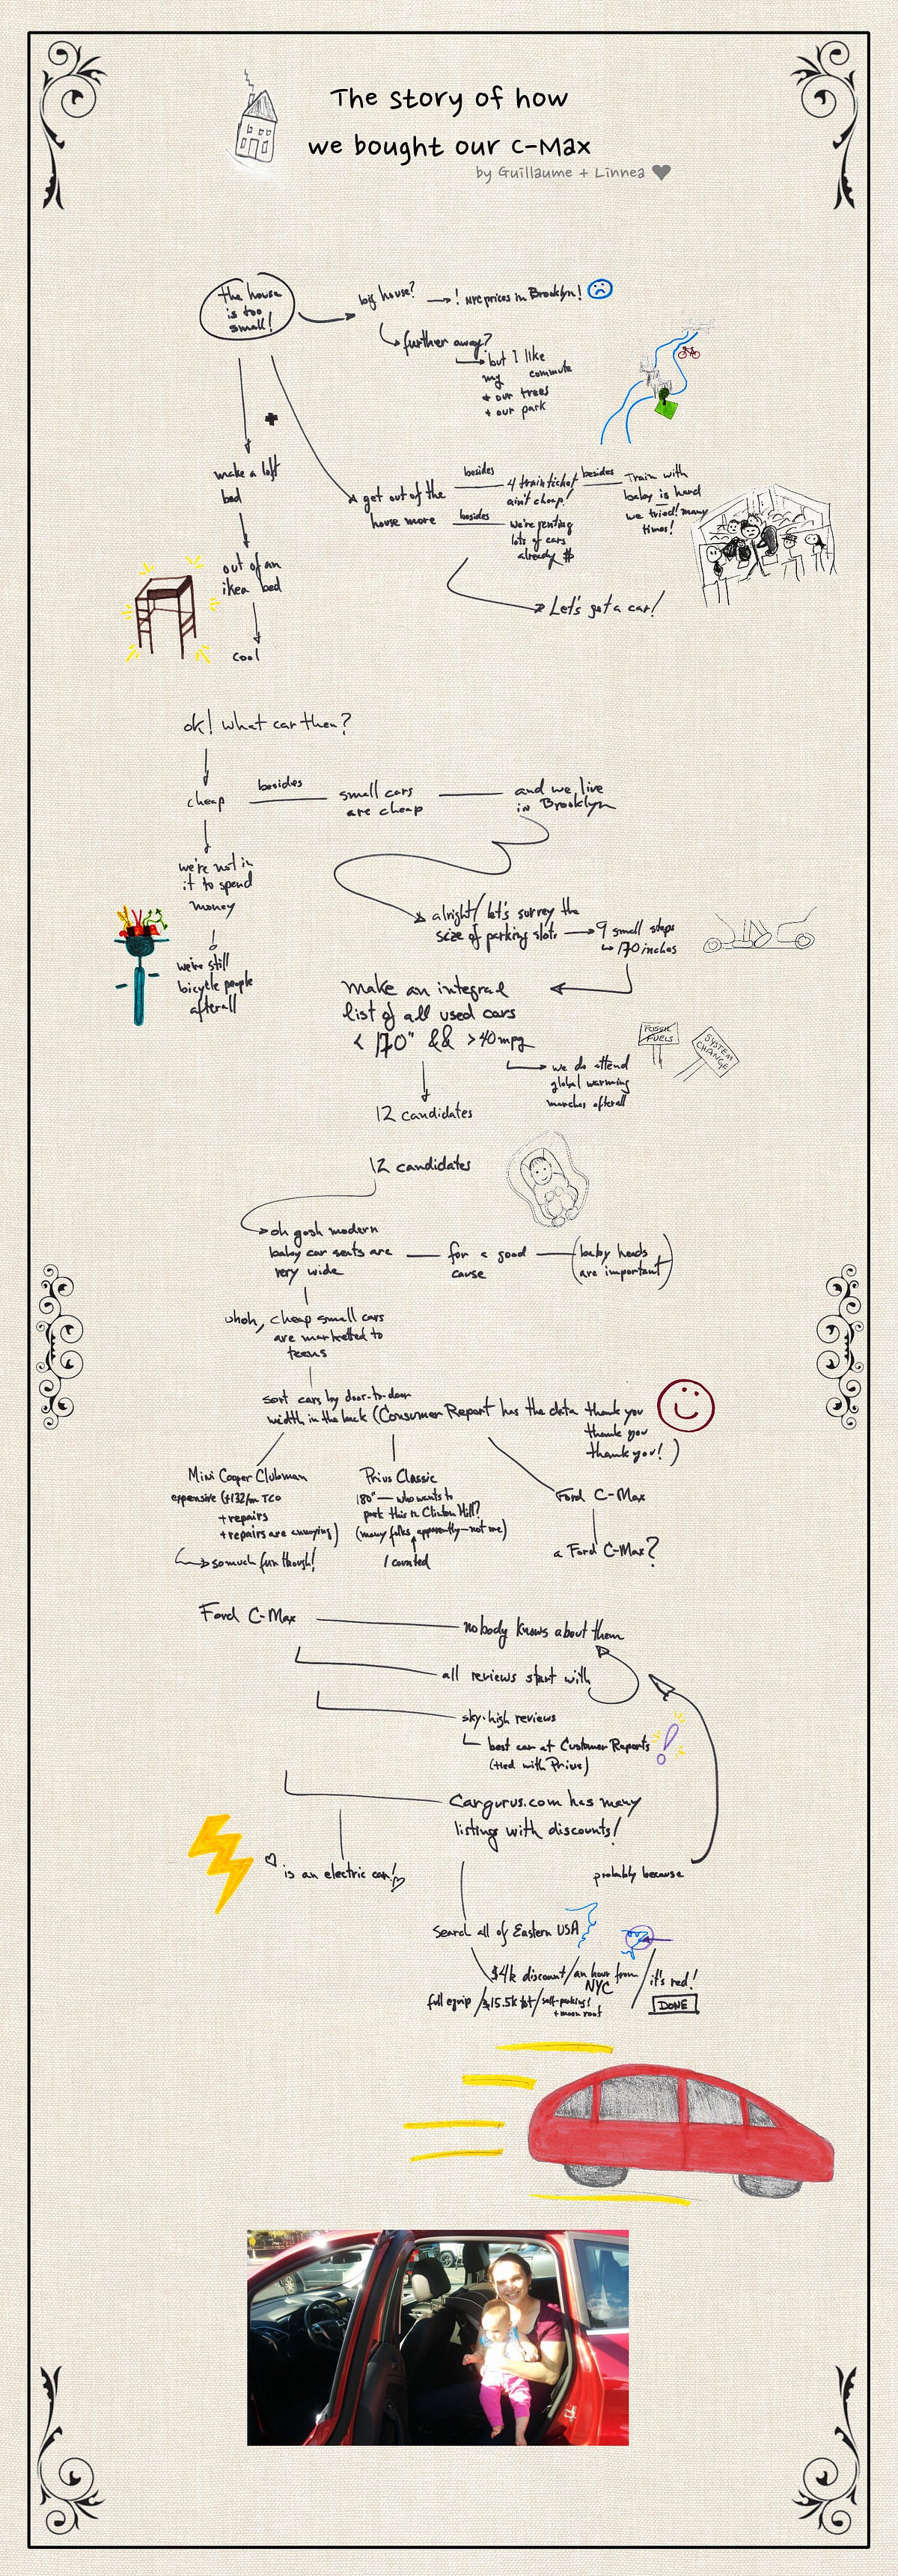 The story of how
we bought our C-Max
by Guillaume + Linnea
the house
is too
small!
big house?
→ ! NYC prices in Brooklyn!
further away?
but I like
my commute
+ our trees
+ our park
+
make a loft
bed
out of an
ikea bed
cool
get out of the
house more
besides
4 train ticket
ain't cheap!
besides
Train with
baby is hard
we tried! many
times!
besides
we're renting
lots of cars
already $
Let's get a car!
ok! what car then?
cheap
besides
small cars
are cheap
and we live
in Brooklyn
we're not in
it to spend
money
we're still
bicycle people
afterall
alright! let's survey the
size of parking slots
9 small steps
↳ 170 inches
make an integral
list of all used cars
< 170" && > 40 mpg
we do attend
global warming
marches afterall
FOSSIL
FUELS
SYSTEM
CHANGE!
12 candidates
12 candidates
oh gosh modern
baby car seats are
very wide
for a good
cause
(baby heads
are important)
uhoh, cheap small cars
are marketted to
teens
sort cars by door-to-door
width in the back (Consumer Report has the data thank you
thank you
thank you! )
Mini Cooper Clubman
expensive (+132/m TCO
+ repairs
+ repairs are annoying)
so much fun though!
Prius Classic
180" — who wants to
park this in Clinton Hill?
(many folks, apparently — not me)
I counted
Ford C-Max
a Ford C-Max?
Ford C-Max
nobody knows about them
all reviews start with
sky-high reviews
best car at Customer Reports
(tied with Prius)
!
Cargurus.com has many
listings with discounts!
is an electric car!
probably because
Search all of Eastern USA
$4k discount / an hour from
NYC
/ it's red!
full equip / $15.5k tot / self-parking!
+ moon roof
DONE